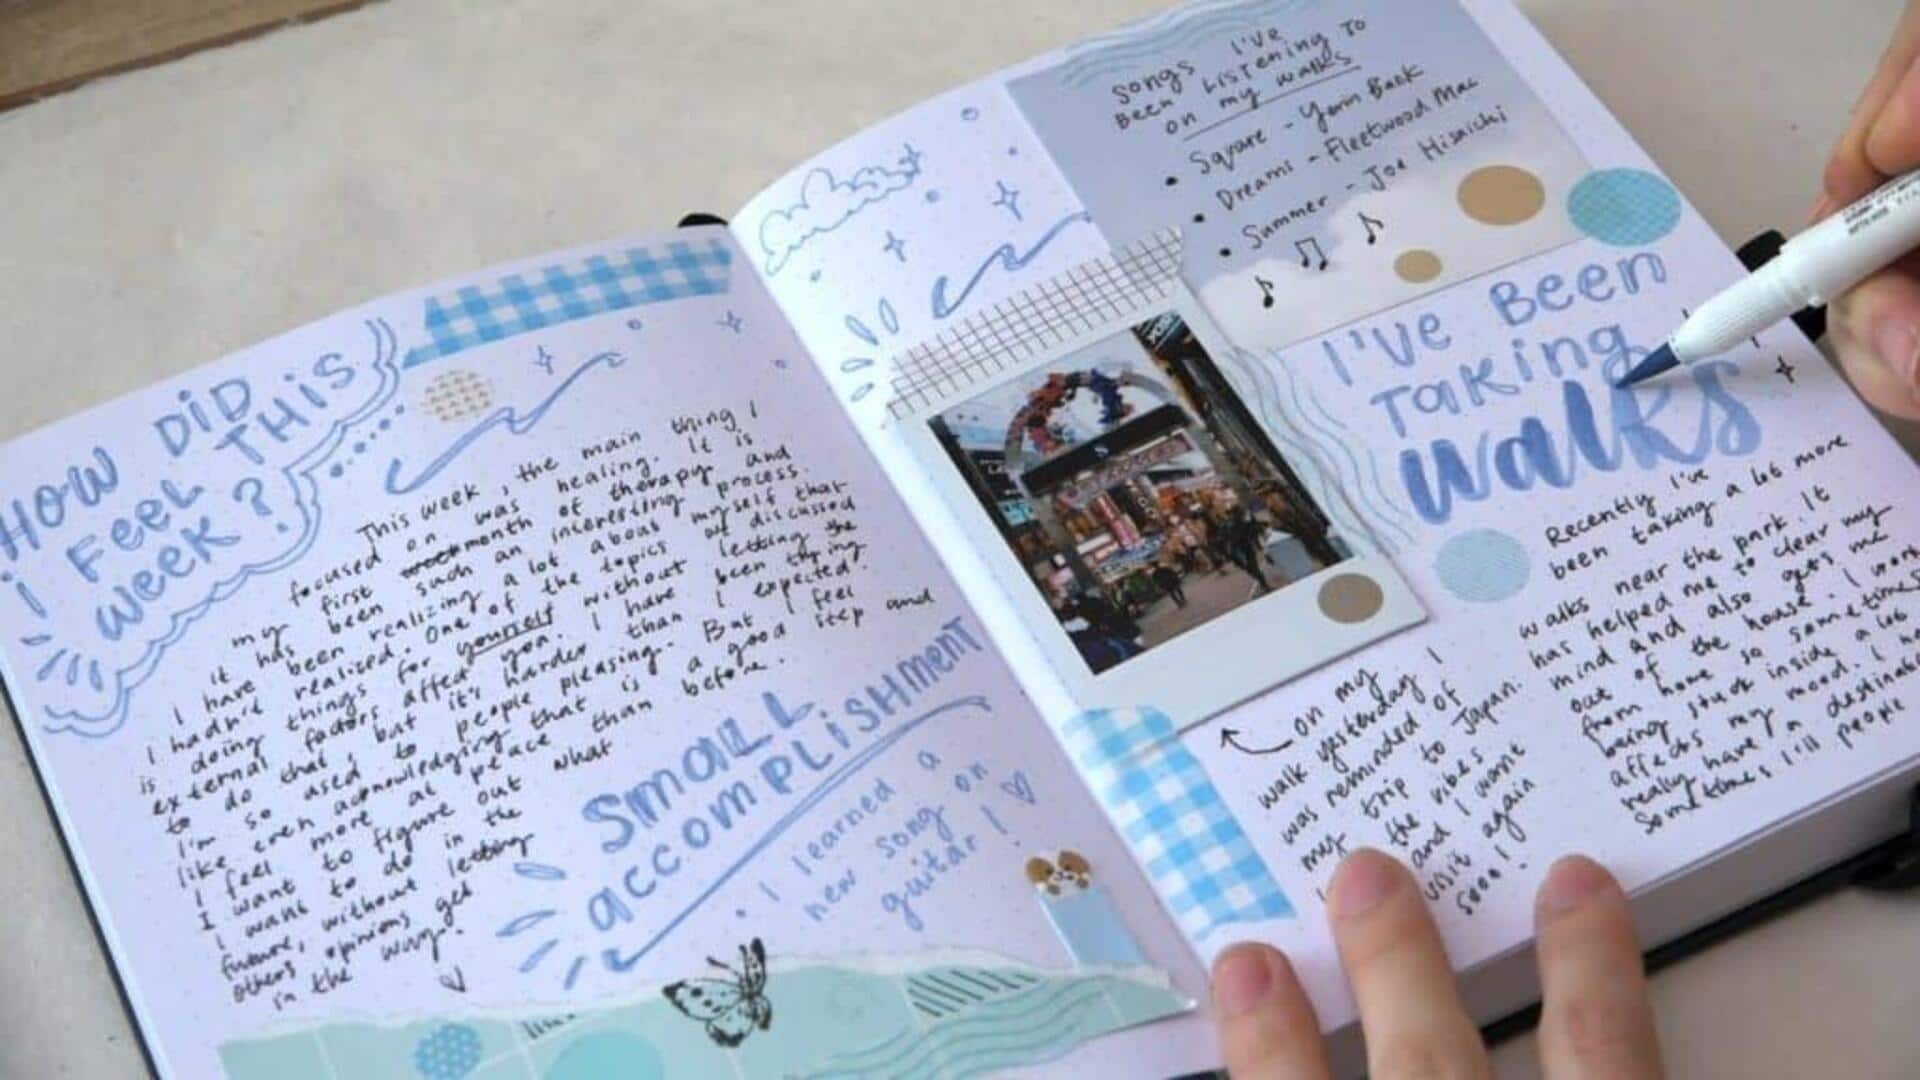 HOW DiD
i FEEL THiS
week?
This week, the main thing I
focused on was healing. It is
my first month of therapy and
it has been such an interesting process.
I have been realizing a lot about myself that
I hadn't realized. One of the topics we discussed
is doing things for yourself without letting the
external factors affect you. I have been trying
to do that, but it's harder than I expected.
I'm so used to people pleasing. But I feel
like even acknowledging that is a good step and
I feel more at peace than before.
I want to figure out what
I want to do in the
future, without letting
others opinions get
in the way.
Small
accomplishment
• I learned a
new song on
guitar!
songs I've
Been Listening To
on my walks
• Square - Yerin Baek
• Dreams - Fleetwood Mac
• Summer - Joe Hisaichi
I've Been
Taking
walks
on my
walk yesterday I
was reminded of
my trip to Japan.
the vibes
and I want
visit again
soon!
Recently I've
been taking a lot more
walks near the park. It
has helped me to clear my
mind and also gets me
out of the house. I work
from home so sometimes
being stuck inside a lot
affects my mood. I
really have a destination
sometimes I'll people